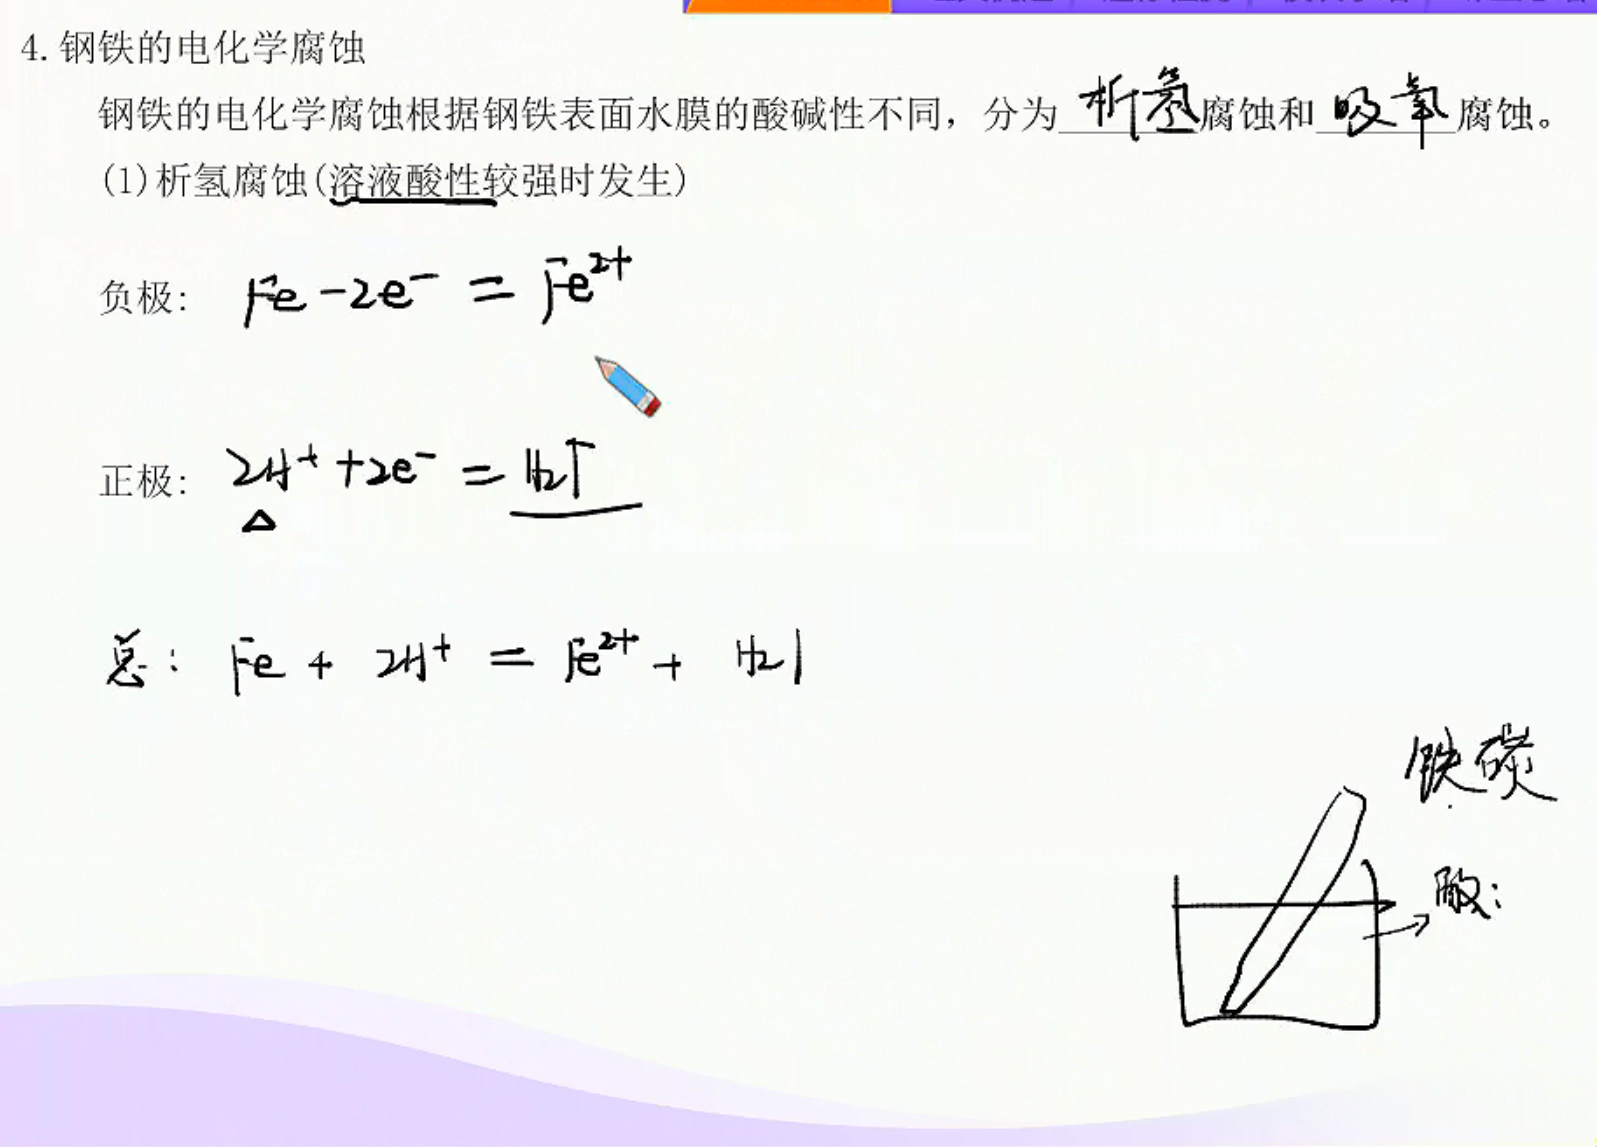 4.钢铁的电化学腐蚀
钢铁的电化学腐蚀根据钢铁表面水膜的酸碱性不同，分为析氢腐蚀和吸氧腐蚀。
(1)析氢腐蚀(溶液酸性较强时发生)
负极: Fe-2e⁻=Fe²⁺
正极: 2H⁺+2e⁻=H₂↑
△
总: Fe+2H⁺=Fe²⁺+H₂↑
铁碳
酸: